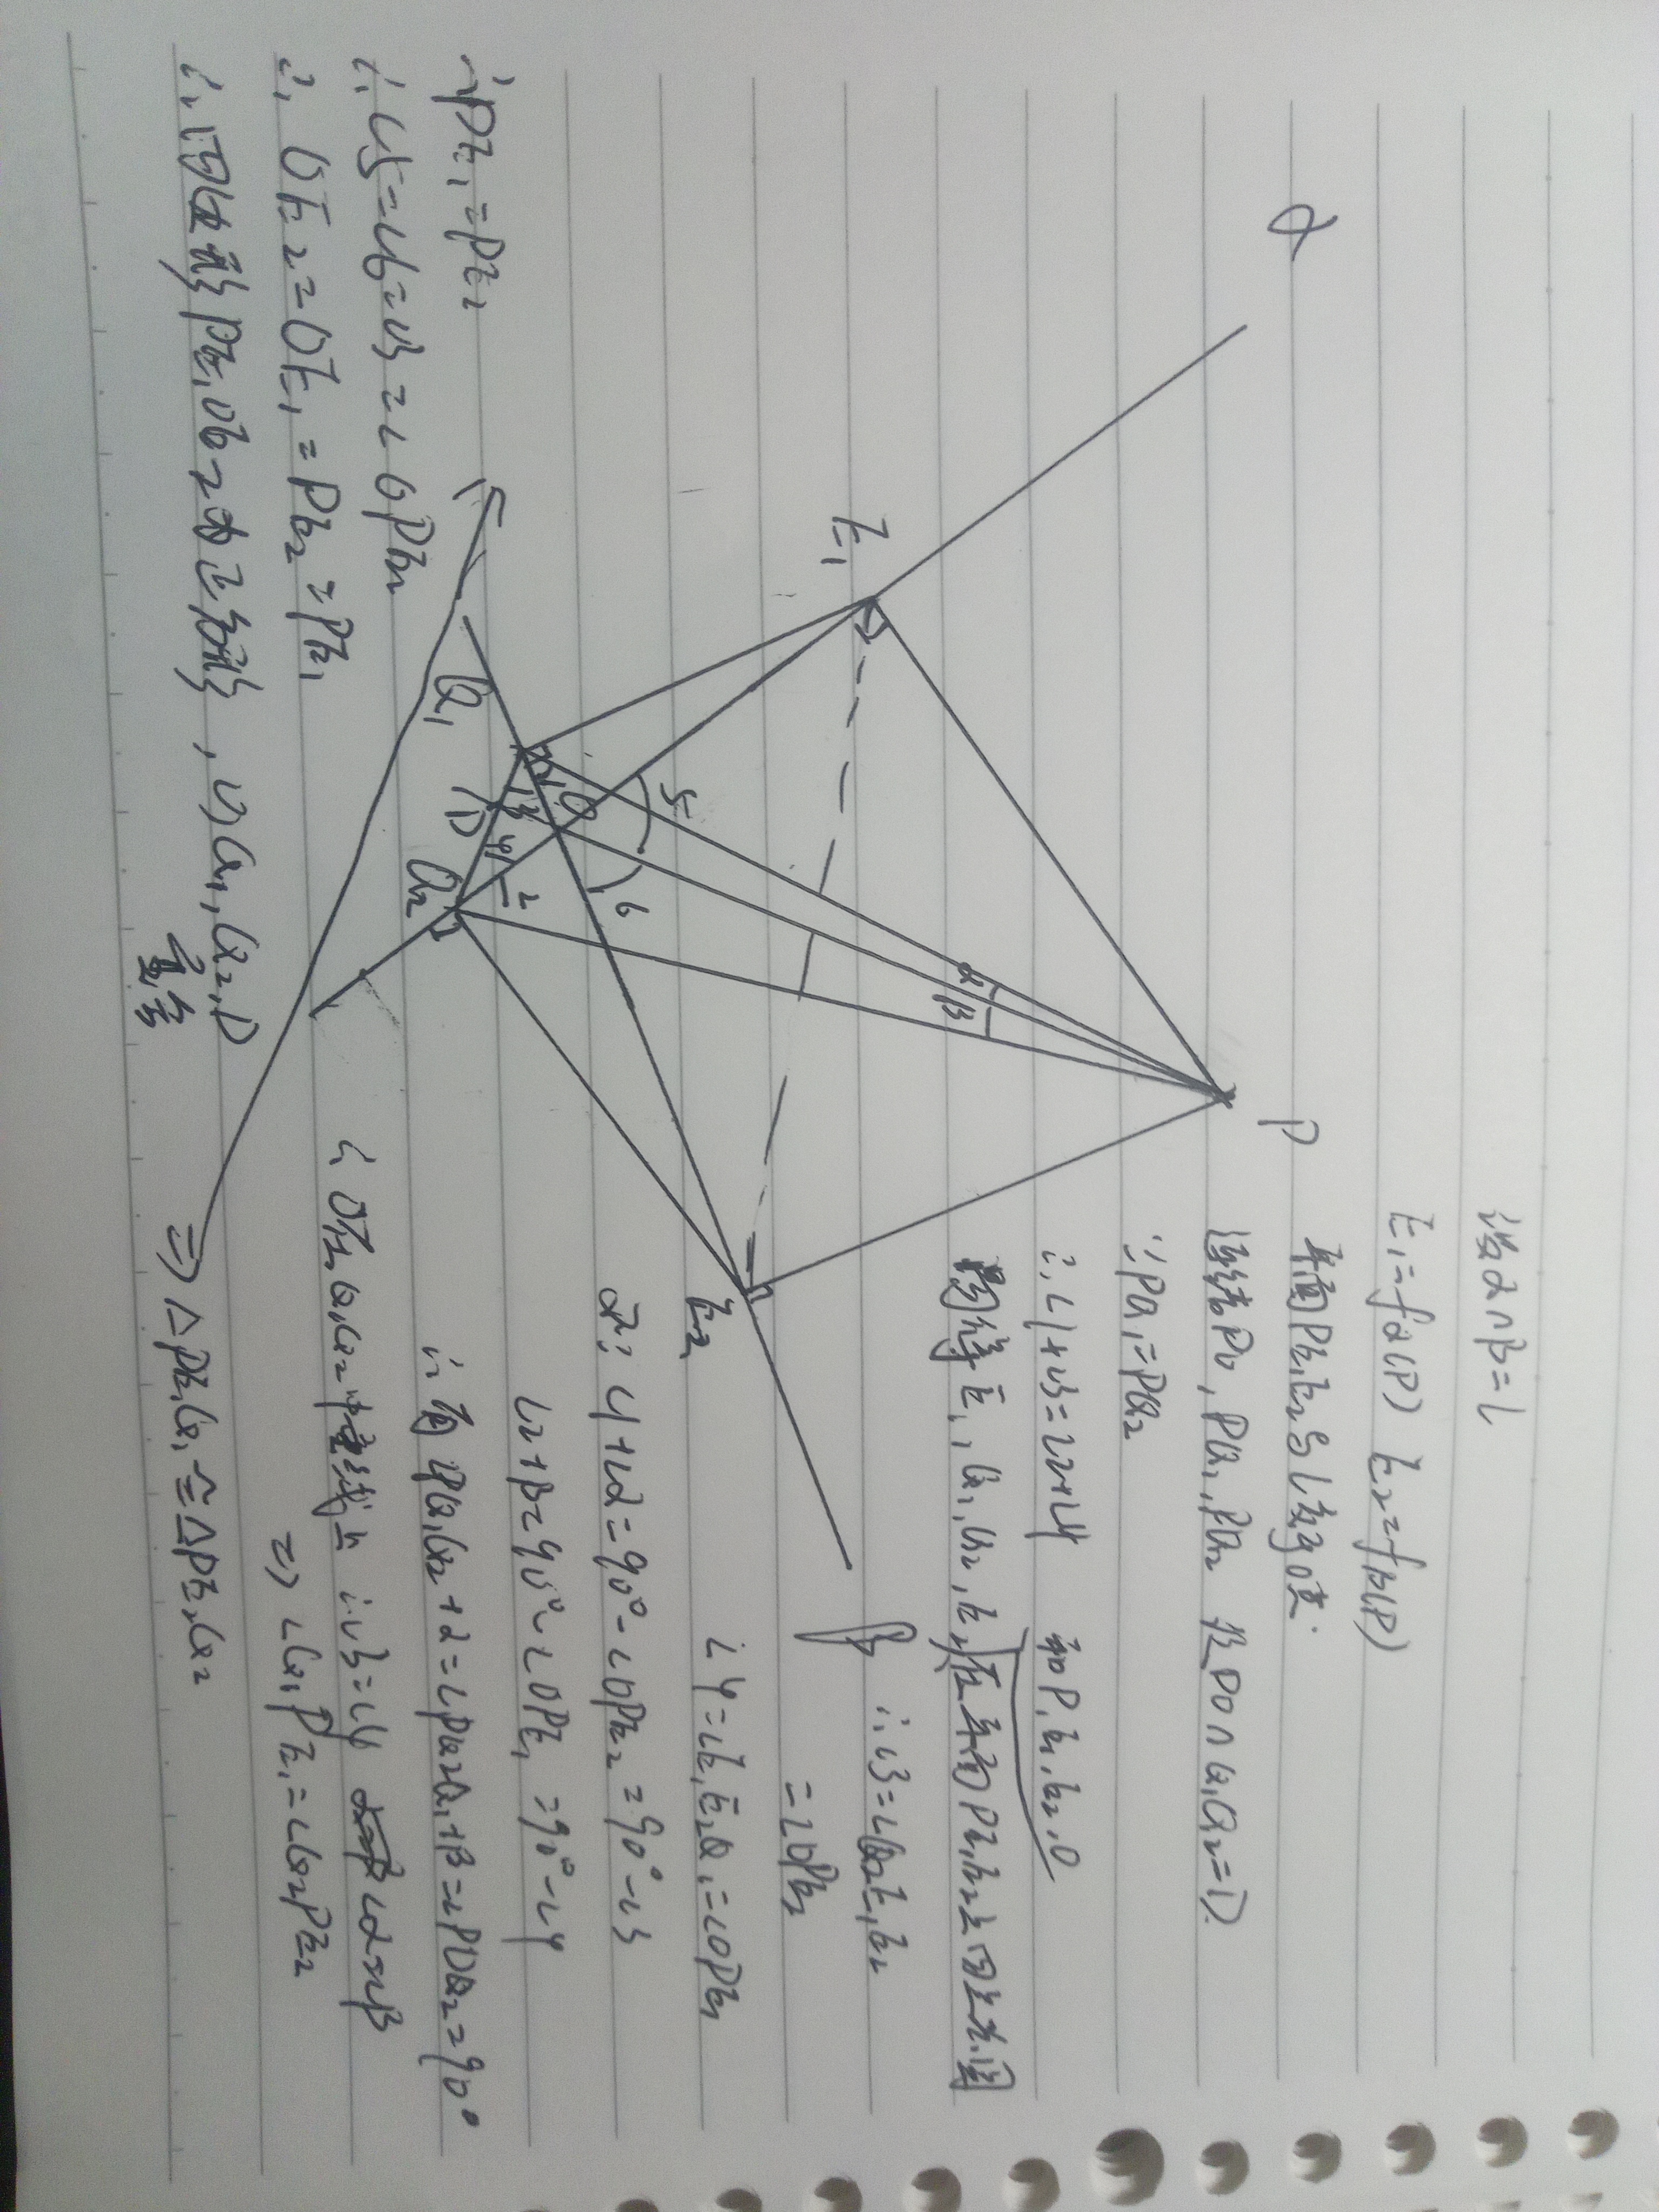 设α∩β=l
E₁=fα(P) E₂=fβ(P)
平面PE₁E₂与l交于O点.
连结PO,PQ₁,PQ₂ 设PO∩Q₁Q₂=D
∵PQ₁=PQ₂
∴∠1+∠3=∠2+∠4 而P,E₁,E₂,O
E₁,Q₁,Q₂,E₂ 在平面PE₁E₂上四点共圆
∴∠3=∠Q₂E₁E₂
=∠OPE₂
∠4=∠E₁E₂Q₁=∠OPE₁
又∵∠1+∠α=90°-∠OPE₂=90°-∠3
∠2+∠β=90°-∠OPE₁=90°-∠4
∴有∠PQ₁Q₂+α=∠PQ₂Q₁+β=∠PDQ₂=90°
∴ ∠3=∠4 ∠α=∠β
⇒ ∠Q₁PE₁=∠Q₂PE₂
⇒ △PE₁Q₁≌△PE₂Q₂
∴PE₁=PE₂
∴∠5=∠6=∠3=∠OPE₂
∴OE₂=OE₁=PE₂=PE₁
∴四边形PE₁OE₂为正方形,∴Q₁,Q₂,D
重合
α
P
E₁
E₂
Q₁
Q₂
D
O
β
α
β
1
2
3
4
5
6